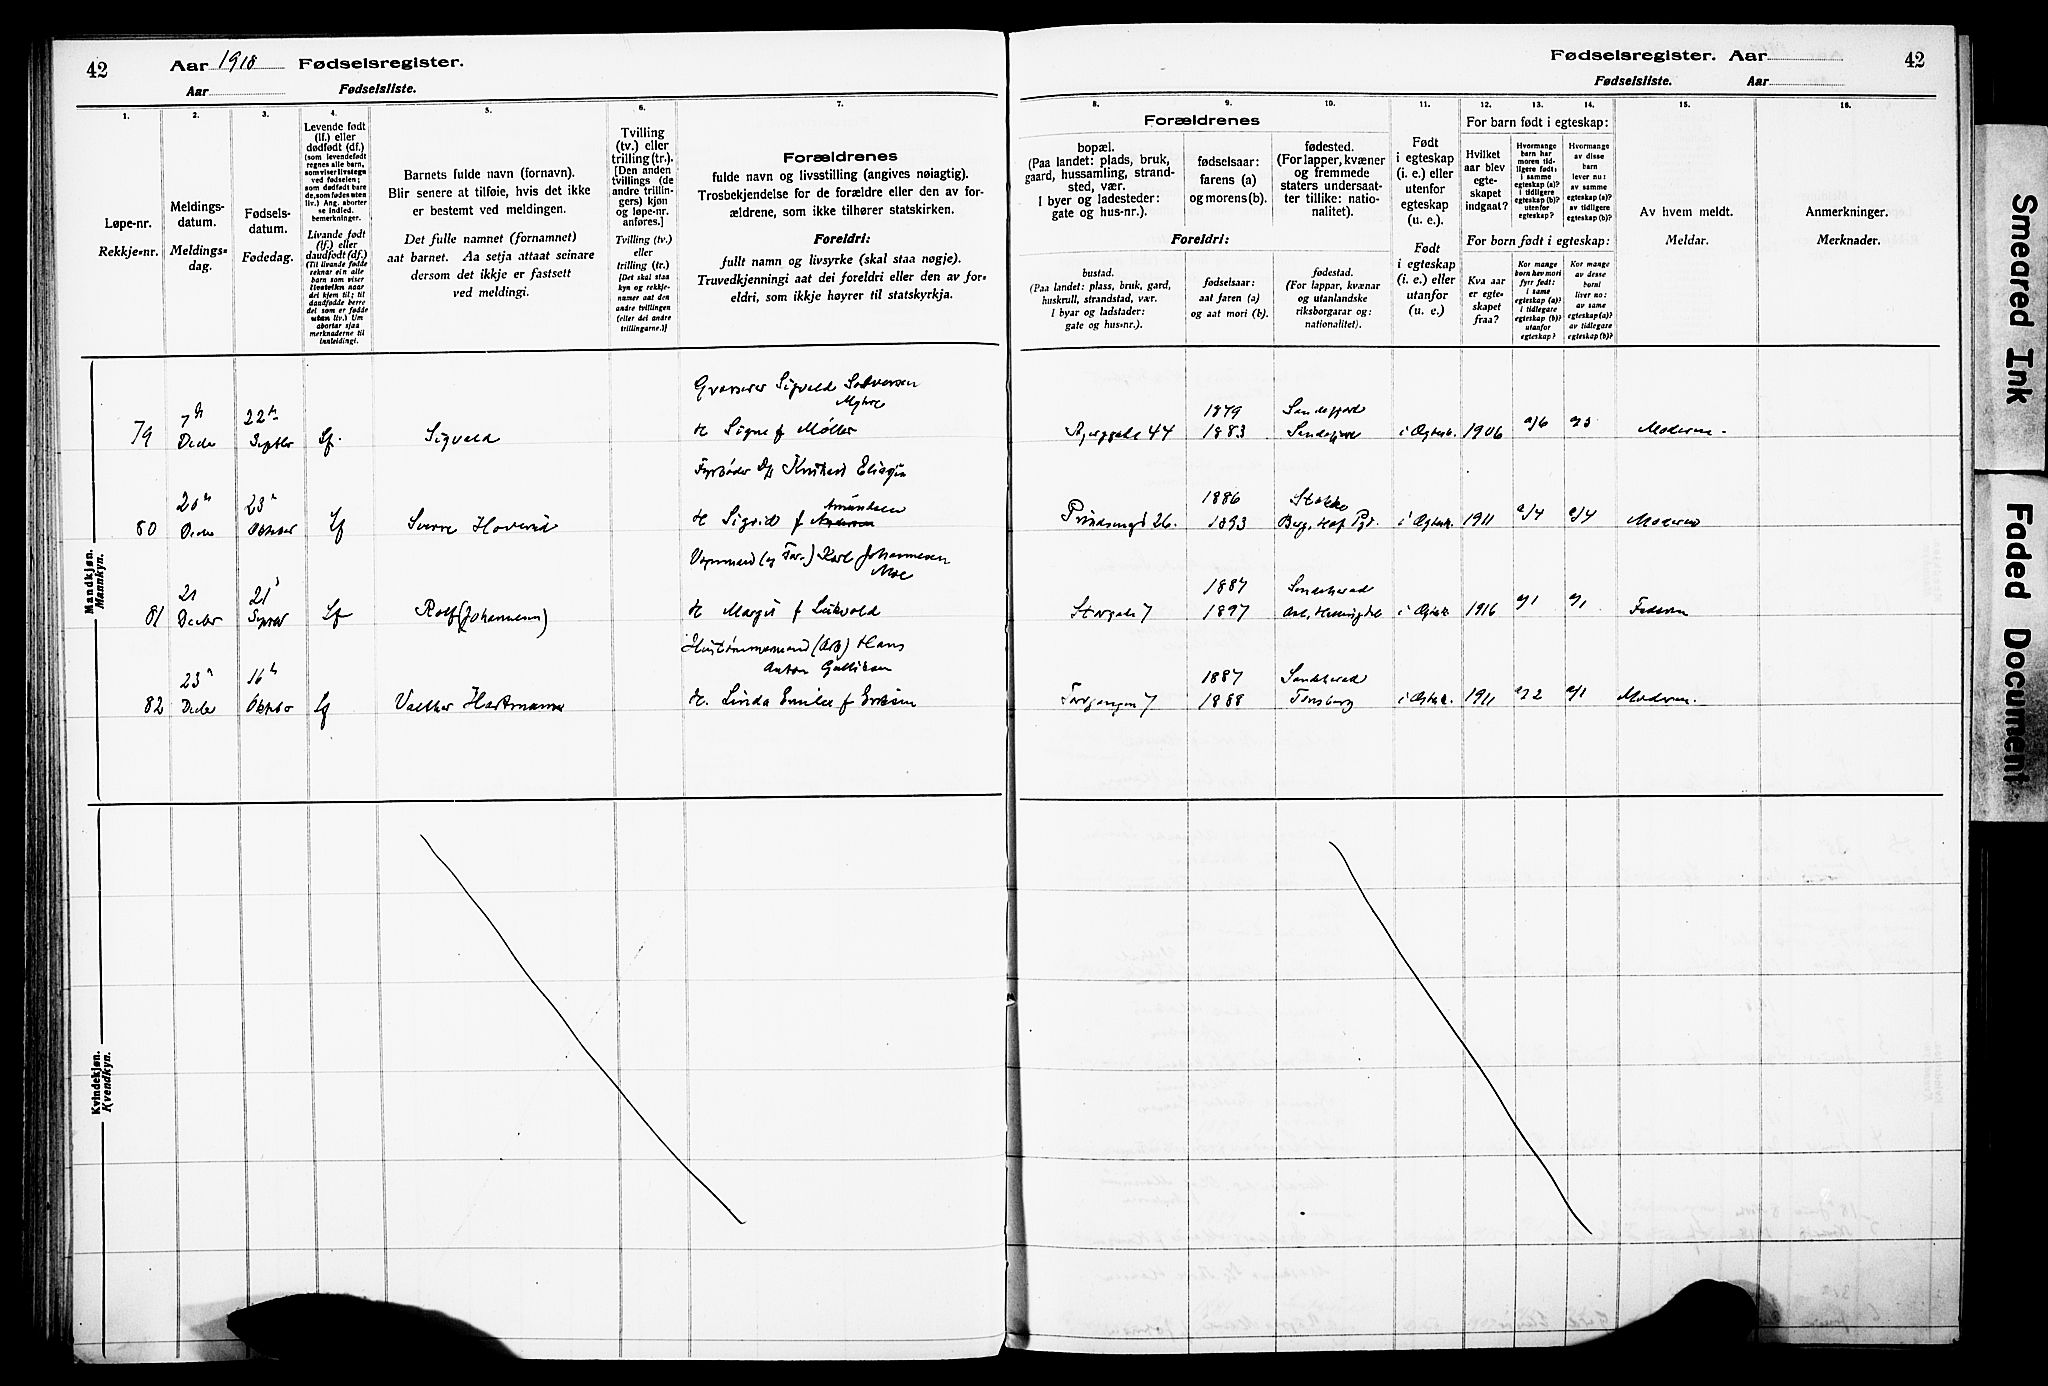 42
Aar 1918 Fødselsregister.
Aar Fødselsliste.
1.
Løpe-nr.
Rekkje=nr.
2.
Meldings-
datum.
Meldings=
dag.
3.
Fødsels-
datum.
Fødedag.
4.
Levende født
(lf.) eller
dødfødt (df.)
(som levendefødt
regnes alle barn,
som viser livstegn
ved fødselen;
som dødfødt bare
de, som fødes uten
liv.) Ang. aborter
se indled.
bemerkninger.
Livande født
(lf.) eller
daudfødt (df.)
(Til livande fødde
reknar ein alle
barn som viser
livsteikn naar
dei kjem til; til
daudfødde berre
dei som er fødde
utan liv.) Um
abortar sjaa
merknaderne til
innleidingi.
5.
Barnets fulde navn (fornavn).
Blir senere at tilføie, hvis det ikke
er bestemt ved meldingen.
Det fulle namnet (fornamnet)
aat barnet. Aa setja attaat seinare
dersom det ikkje er fastsett
ved meldingi.
6.
Tvilling
(tv.) eller
trilling (tr.).
[Den anden
tvillings (de
andre trillin-
gers) kjøn
og løpe-nr.
anføres.]
Tvilling (tv.)
eller
trilling (tr.)
[Det skal staa
kyn og rekkje-
numer aat den
andre tvillingen
(eller dei andre
trillingarne.)]
7.
Forældrenes
fulde navn og livsstilling (angives nøiagtig).
Trosbekjendelse for de forældre eller den av for-
ældrene, som ikke tilhører statskirken.
Foreldri:
fullt namn og livsyrke (skal staa nøgje).
Truvedkjenningi aat dei foreldri eller den av for=
eldri, som ikkje høyrer til statskyrkja.
Mandkjøn.
Mannkyn.
79
7de
Decbr
22de
Septbr
Lf.
Sigvald
Sigvald
Myhre
H. Signe f Møller
80
Decbr
23de
Oktober
Lf
Sverre
H. Sigrid f
Amundsen
81
21
Decbr
21
Septbr
Lf
Rolf (Johannesen)
Karl Johannesen
Moe
H. Margit f
82
23de
Decbr
16de
Oktobr
Lf
Walther Hartmann
Hans
Anton Gulliksen
H. Linda Emilie f Eriksen
Kvindekjøn.
Kvendkyn.
Fødselsregister. Aar
Fødselsliste. Aar
42
8.
Forældrenes
bopæl.
(Paa landet: plads, bruk,
gaard, hussamling, strand-
sted, vær.
I byer og ladesteder:
gate og hus-nr.).
Foreldri:
bustad.
(Paa landet: plass, bruk, gard,
huskrull, strandstad, vær.
I byar og ladstader:
gate og hus=nr.).
9.
fødselsaar:
farens (a)
og morens (b).
fødselsaar:
aat faren (a)
og aat mori (b).
10.
fødested.
(For lapper, kvæner
og fremmede
staters undersaat-
ter tillike: natio-
nalitet).
fødestad.
(For lappar, kvænar
og utanlandske
riksborgarar og:
nationalitet).
11.
Født
i egteskap
(i. e.) eller
utenfor
egteskap
(u. e.).
Født
i egteskap
(i. e.) eller
utanfor
(u. e.).
12.
For barn født i egteskap:
Hvilket
aar blev
egte-
skapet
indgaat?
For born født i egteskap:
Kva aar
er egte=
skapet
fraa?
13.
Hvormange
barn har
moren tid-
ligere født:
i samme
egteskap (a)?
i tidligere
egteskap (b)?
utenfor
egteskap?
Kor mange
born hev mori
fyrr født:
i same
egteskap (a)?
i tidlegare
egteskap (b)?
utanfor
egteskap?
14.
Hvormange
av disse
barn
lever nu:
av samme
egteskap (a)?
av tidligere
egteskap (b)?
Kor mange
av desse
borni
liver no:
av same
egteskap (a)?
av tidlegare
egteskap (b)?
15.
Av hvem meldt.
Meldar.
16.
Anmerkninger.
Merknader.
44
1879
1883
Sandefjord
Sandefjord
i Ægtesk.
1906
a/6
a/3
Moderen
26.
1886
1893
Stokke
i Ægtesk.
1911
a/4
a/4
Moderen
Storgate 7
1887
1897
Sandeherad
i Ægtesk.
1916
a/1
a/1
Faderen
Torvgangen 7
1887
1888
Sandeherad
Tønsberg
i Ægtesk.
1911
a/2
a/1
Moderen.
Smeared Ink
Faded Document